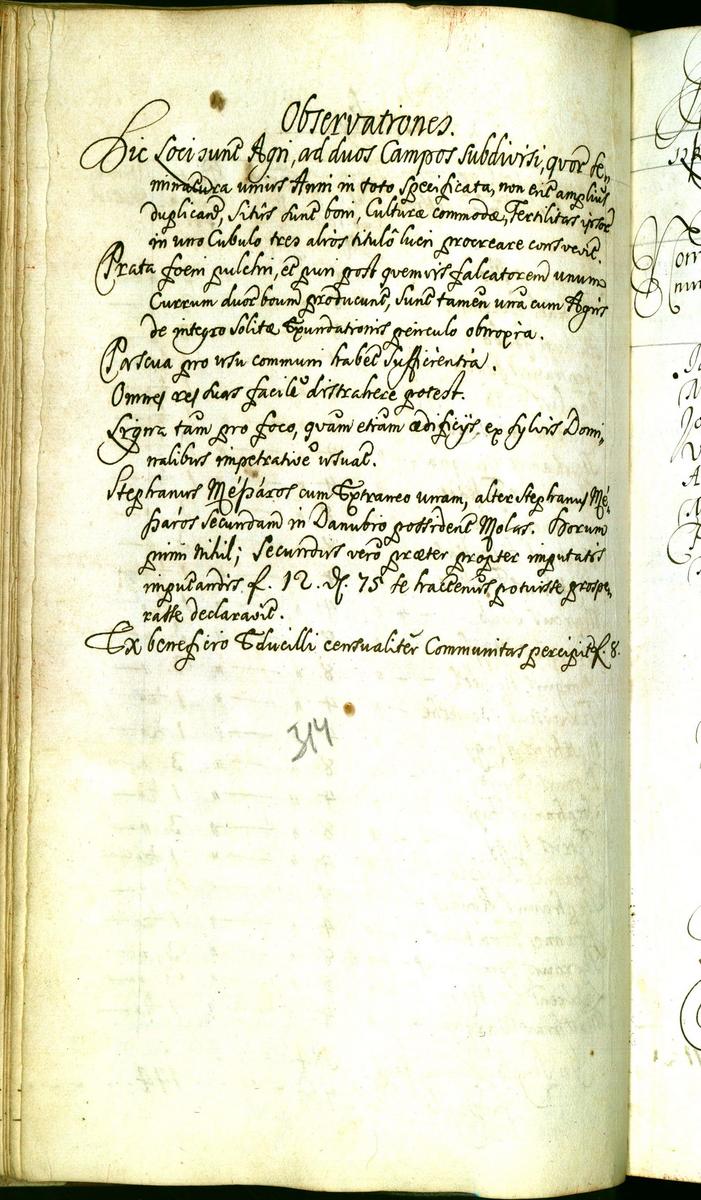 Observationes.
Hic Loci sunt Agri, ad duos Campos subdivisi, quor̄ se„
minatura unius Anni in toto specificata, non erit amplius
duplicand, Sitûs sunt boni, Culturæ commodæ, Fertilitas ipsor̄
in uno Cubulo tres alios titulô lucri procreare consvevit.
Prata foeni pulchri, et puri post quemvis falcatorem unum
Currum duor̄ boum producunt, sunt tamen unà cum Agris
de integro solitæ Exundationis periculo obnoxia.
Pascua pro usu communi habet sufficientia.
Omnes res suas facile distrahere potest.
Ligna tam pro foco, quàm etiam ædificijs, ex sylvis Domi„
nalibus impetrative usuat.
Stephanus Mészáros cum Extraneo unam, alter Stephanus Mé„
száros secundam in Danubio possident Molas. Horum
primi nihil; Secundus verò præter propter imputatis
imputandis f. 12. d. 75 se hactenus potuisse prospe„
rasse declaravit.
Ex beneficio Educilli censualiter Communitas percipit f. 8.
314